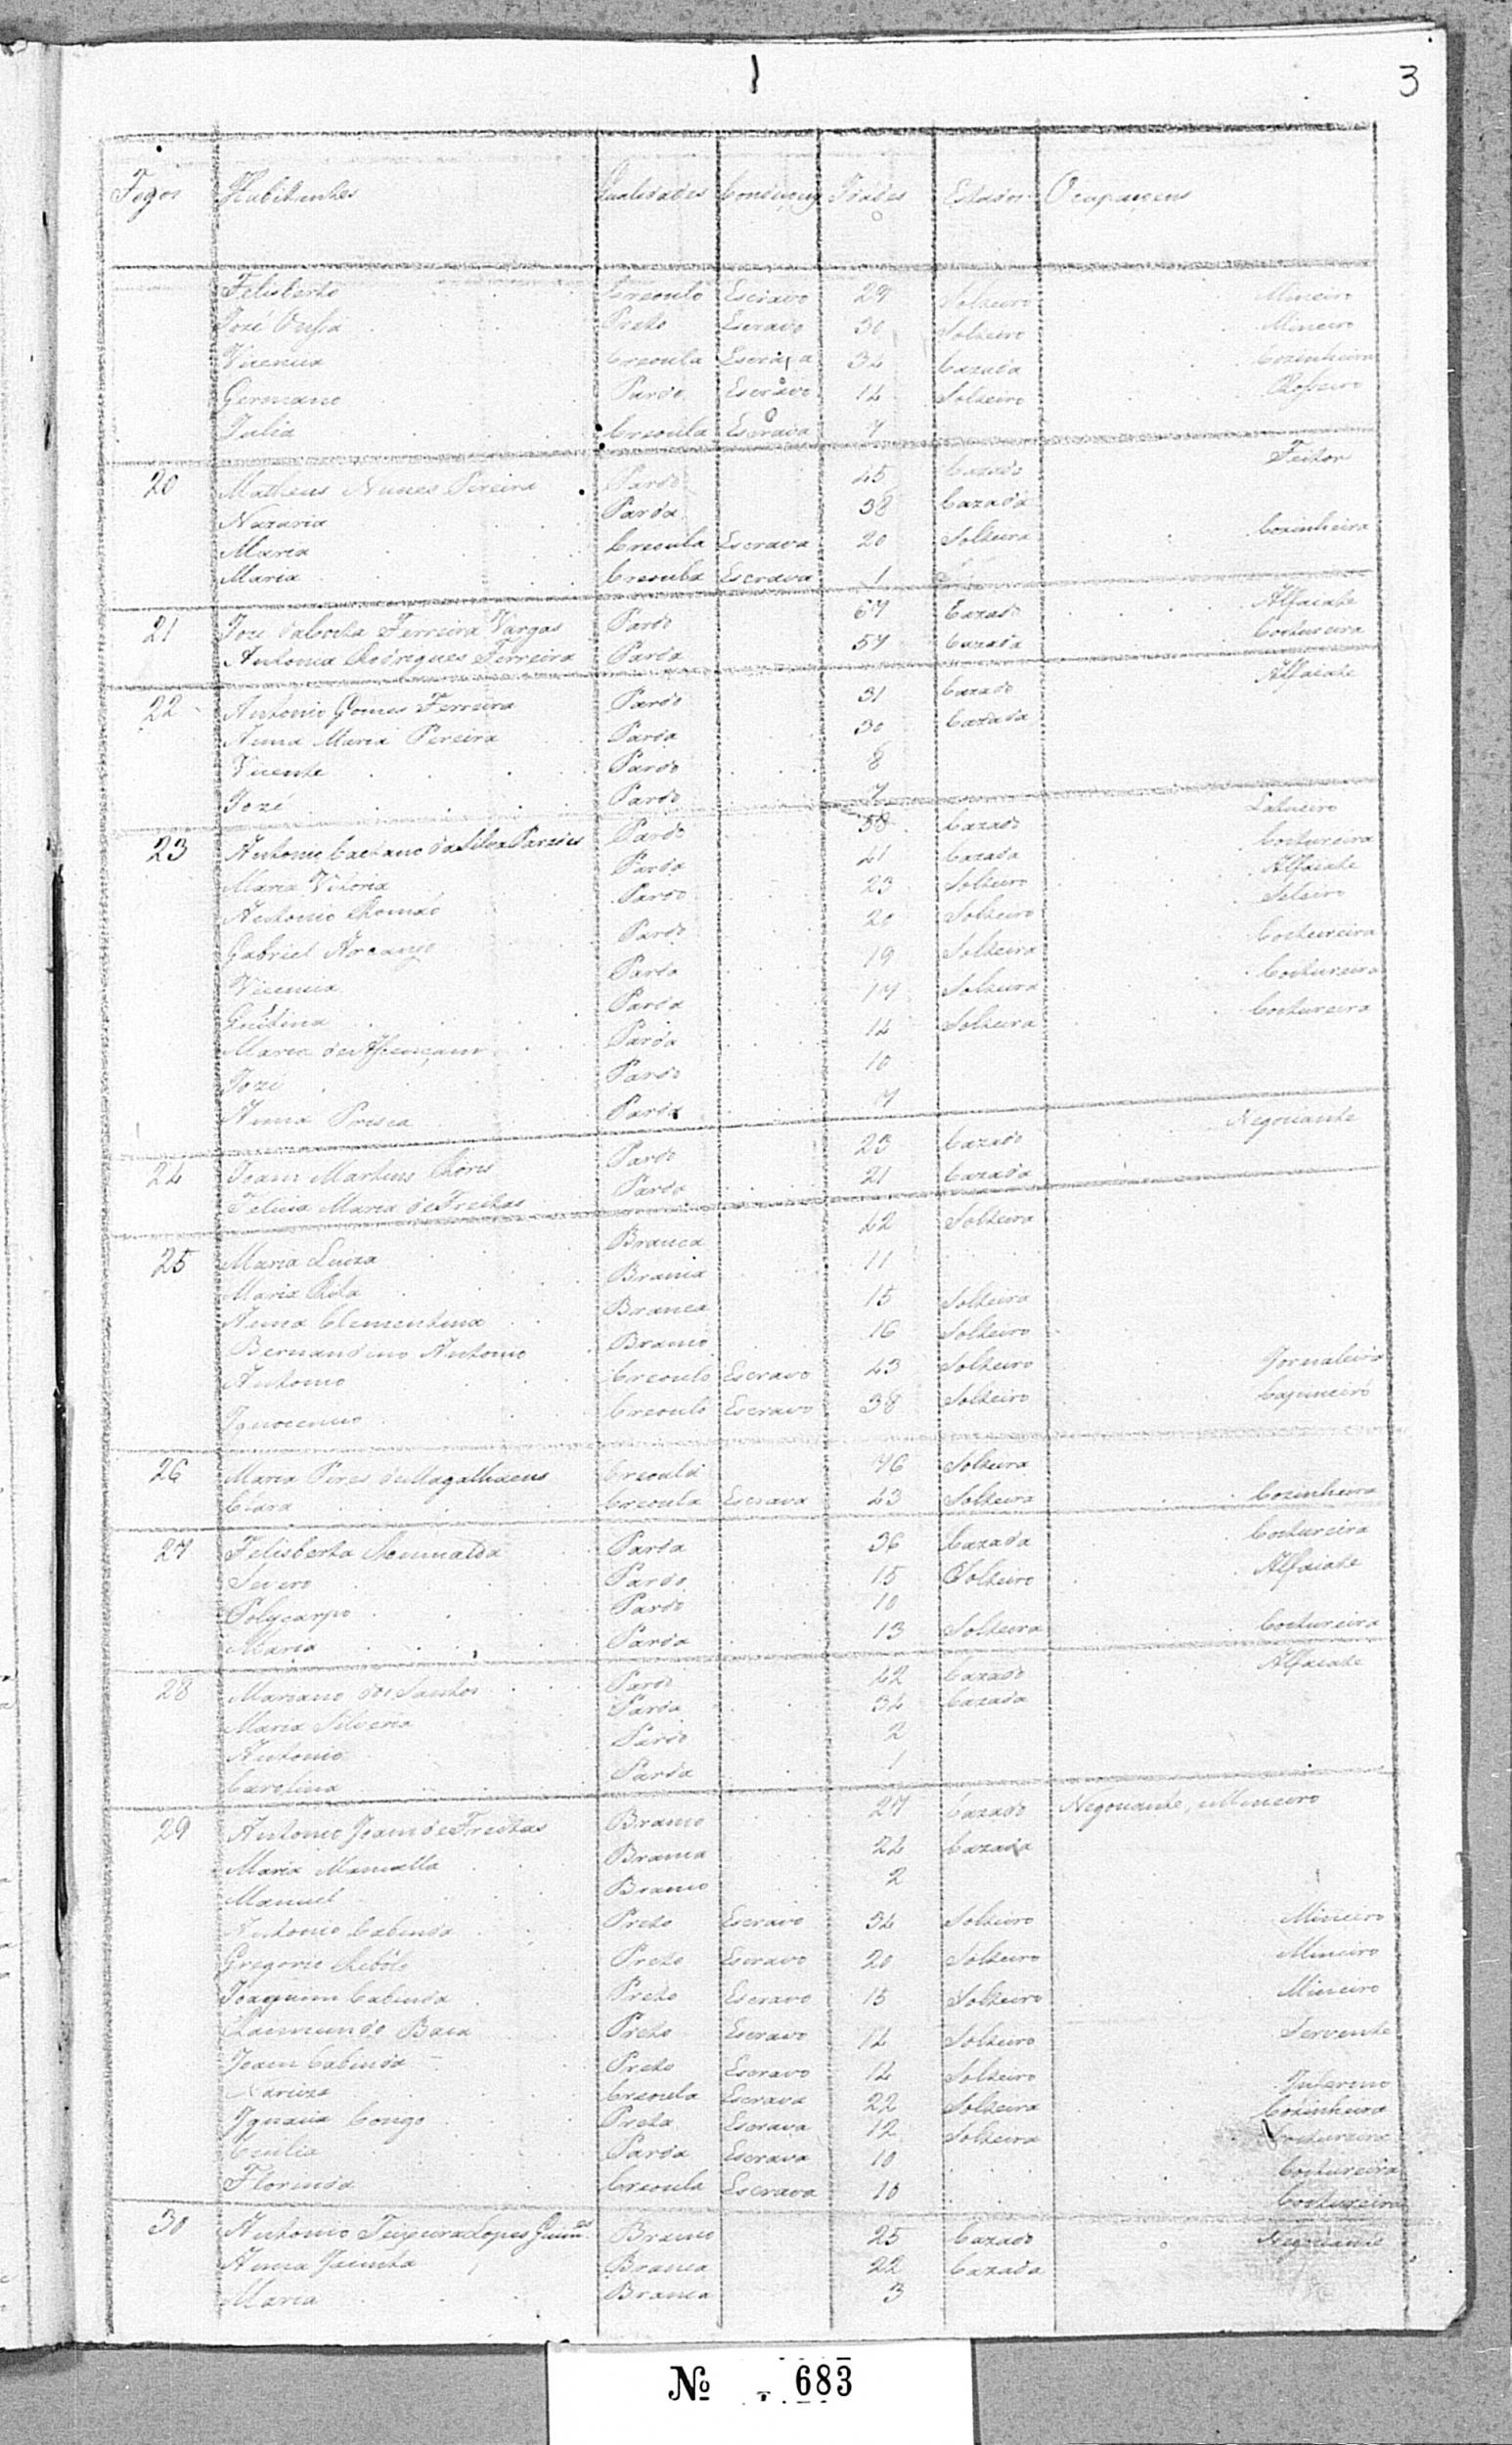 1
3
Fogos Habitantes Qualidades Condiçoens Idades Estados Ocupaçoens
Felisberto Creoulo Escravo 29 Solteiro Mineiro
Jozé Preto Escravo 30 Solteiro Mineiro
Vicencia Creoula Escrava 34 Cazada Cozinheira
Germano Pardo Escravo 14 Solteiro Rosseiro
Julia Creoula Escrava 7
20 Matheus Nunes Pereira Pardo 45 Cazado Feitor
Nazaria Parda 38 Cazada
Maria Creoula Escrava 20 Solteira Cozinheira
Maria Creoula Escrava 1
21 Joze da Costa Ferreira Vargas Pardo 67 Cazado Alfaiate
Antonia Rodrigues Ferreira Parda 57 Cazada Costureira
22 Antonio Gomes Ferreira Pardo 31 Cazado Alfaiate
Anna Maria Pereira Parda 30 Cazada
Vicente Pardo 8
Jozé Pardo 7
23 Antonio Caetano da Silva Pardo 58 Cazado Latueiro
Maria Vitoria Parda 41 Cazada Costureira
Antonio Thomáé Pardo 23 Solteiro Alfaiate
Gabriel Arcanjo Pardo 20 Solteiro Seleiro
Vicencia Parda 19 Solteira Costureira
Parda 17 Solteira Costureira
Maria Parda 14 Solteira Costureira
Jozé Pardo 10
Anna Prisca Parda 7
24 Joam Martins Pardo 23 Cazado Negociante
Felicia Maria de Freitas Parda 21 Cazada
25 Maria Luiza Branca 42 Solteira
Maria Rita Branca 11
Anna Clementina Branca 15 Solteira
Bernardino Antonio Branco 16 Solteiro
Antonio Creoulo Escravo 43 Solteiro Jornaleiro
Ignocencio Creoulo Escravo 38 Solteiro Capineiro
26 Maria Pires de Magalhaens Creoula 76 Solteira
Clara Creoula Escrava 43 Solteira Cozinheira
27 Felisberta Parda 36 Cazada Costureira
Severo Pardo 15 Solteiro Alfaiate
Polycarpo Pardo 10
Maria Parda 13 Solteira Costureira
28 Mariano dos Santos Pardo 42 Cazado Alfaiate
Maria Silveria Parda 34 Cazada
Antonio Pardo 2
Carolina Parda 1
29 Antonio Joam de Freitas Branco 27 Cazado Negociante, e Mineiro
Maria Manoella Branca 24 Cazada
Manuel Branco 2
Antonio Cabinda Preto Escravo 34 Solteiro Mineiro
Gregorio Rebôlo Preto Escravo 20 Solteiro Mineiro
Joaquim Cabinda Preto Escravo 15 Solteiro Mineiro
Raimundo Baca Preto Escravo 14 Solteiro Servente
Joam Cabinda Preto Escravo 14 Solteiro
Nariza Creoula Escrava 22 Solteira Cozinheira
Ignacia Congo Preta Escrava 12 Solteira Costureira
Cecilia Parda Escrava 10 Costureira
Florinda Creoula Escrava 10 Costureira
30 Antonio Teixeira Lopes Guim.es Branco 25 Cazado Negociante
Anna Jacinta Branca 22 Cazada
Maria Branca 3
№ 683